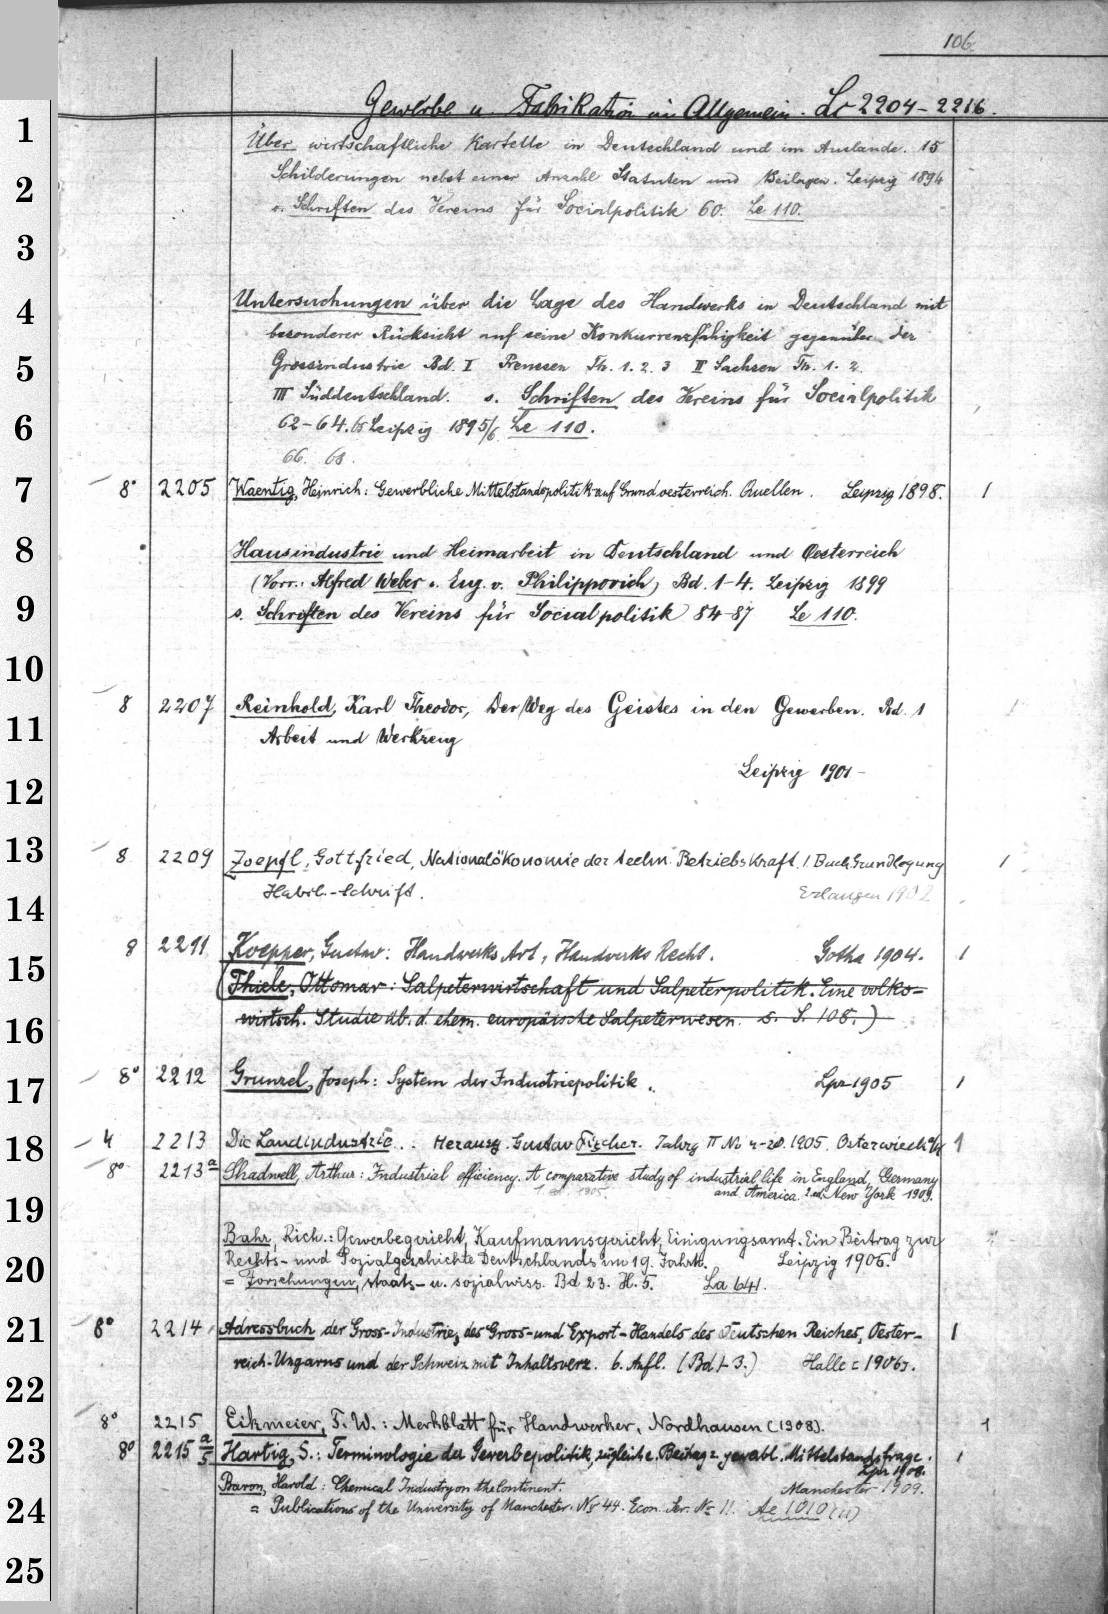 106.
Gewerbe u. Fabrikation im Allgemein. Lc 2204-2216.
1
Über wirtschaftliche Kartelle in Deutschland und im Auslande. 15
2
Schilderungen nebst einer Anzahl Statuten und Beilagen. Leipzig 1894
s. Schriften des Vereins für Socialpolitik 60. Le 110.
3
4
Untersuchungen über die Lage des Handwerks in Deutschland mit
besonderer Rücksicht auf seine Konkurrenzfähigkeit gegenüber der
5
Grossindustrie Bd. I Preussen Th. 1. 2. 3 II Sachsen Th. 1. 2.
III Süddeutschland. s. Schriften des Vereins für Socialpolitik
6
62-64. 65 Leipzig 1895/6 Le 110.
66. 68.
7
8° 2205 Waentig, Heinrich: Gewerbliche Mittelstandspolitik auf Grund oesterreich. Quellen. Leipzig 1898. 1
8
Hausindustrie und Heimarbeit in Deutschland und Oesterreich
(Vorr.: Alfred Weber u. Eug. v. Philippovich) Bd. 1-4. Leipzig 1899
9
s. Schriften des Vereins für Socialpolitik 84-87 Le 110.
10
8 2207 Reinhold, Karl Theodor, Der Weg des Geistes in den Gewerben. Bd. 1 1
11
Arbeit und Werkzeug
Leipzig 1901-
12
13
8 2209 Zoepfl, Gottfried, Nationalökonomie der techn. Betriebskraft. 1 Buch. Grundlegung 1
Habil.-Schrift. Erlangen 1902
14
8 2211 Koepper, Gustav: Handwerks Art, Handwerks Recht. Gotha 1904. 1
15
(Thiele, Ottomar: Salpeterwirtschaft und Salpeterpolitik. Eine volks=
16
wirtsch. Studie üb. d. ehem. europäische Salpeterwesen. s. S. 108.)
17
8° 2212 Grunzel, Joseph: System der Industriepolitik. Lpz 1905 1
18
4 2213 Die Landindustrie. Herausg. Gustav Fischer. Jahrg II No 4-20. 1905. Osterwieck 1
8° 2213a Shadwell, Arthur: Industrial efficiency. A comparative study of industrial life in England, Germany
and America. 2.ed. New York 1909.
19
Bahr, Rich.: Gewerbegericht, Kaufmannsgericht, Einigungsamt. Ein Beitrag zur
Rechts- und Sozialgeschichte Deutschlands im 19. Jahrh. Leipzig 1905.
20
= Forschungen, staats- u. sozialwiss. Bd 23. H. 5. La 641.
21
8° 2214 Adressbuch der Gross-Industrie, des Gross- und Export-Handels des Deutschen Reiches, Oester- 1
reich-Ungarns und der Schweiz mit Inhaltsverz. 6. Aufl. (Bd 1-3.) Halle
22
8° 2215 Eikmeier, F. W.: Merkblatt für Handwerker, Nordhausen (1908). 1
23
8° 2215 a/5 Hartig, S.: Terminologie der Gewerbepolitik, zugleich e. Beitrag z. gewerbl. Mittelstandsfrage. 1
Lpz 1908.
Baron, Harold: Chemical Industry on the Continent. Manchester 1909.
24
= Publications of the University of Manchester. No 44. Econ. Ser. No 11. Ae 1010 (11)
25